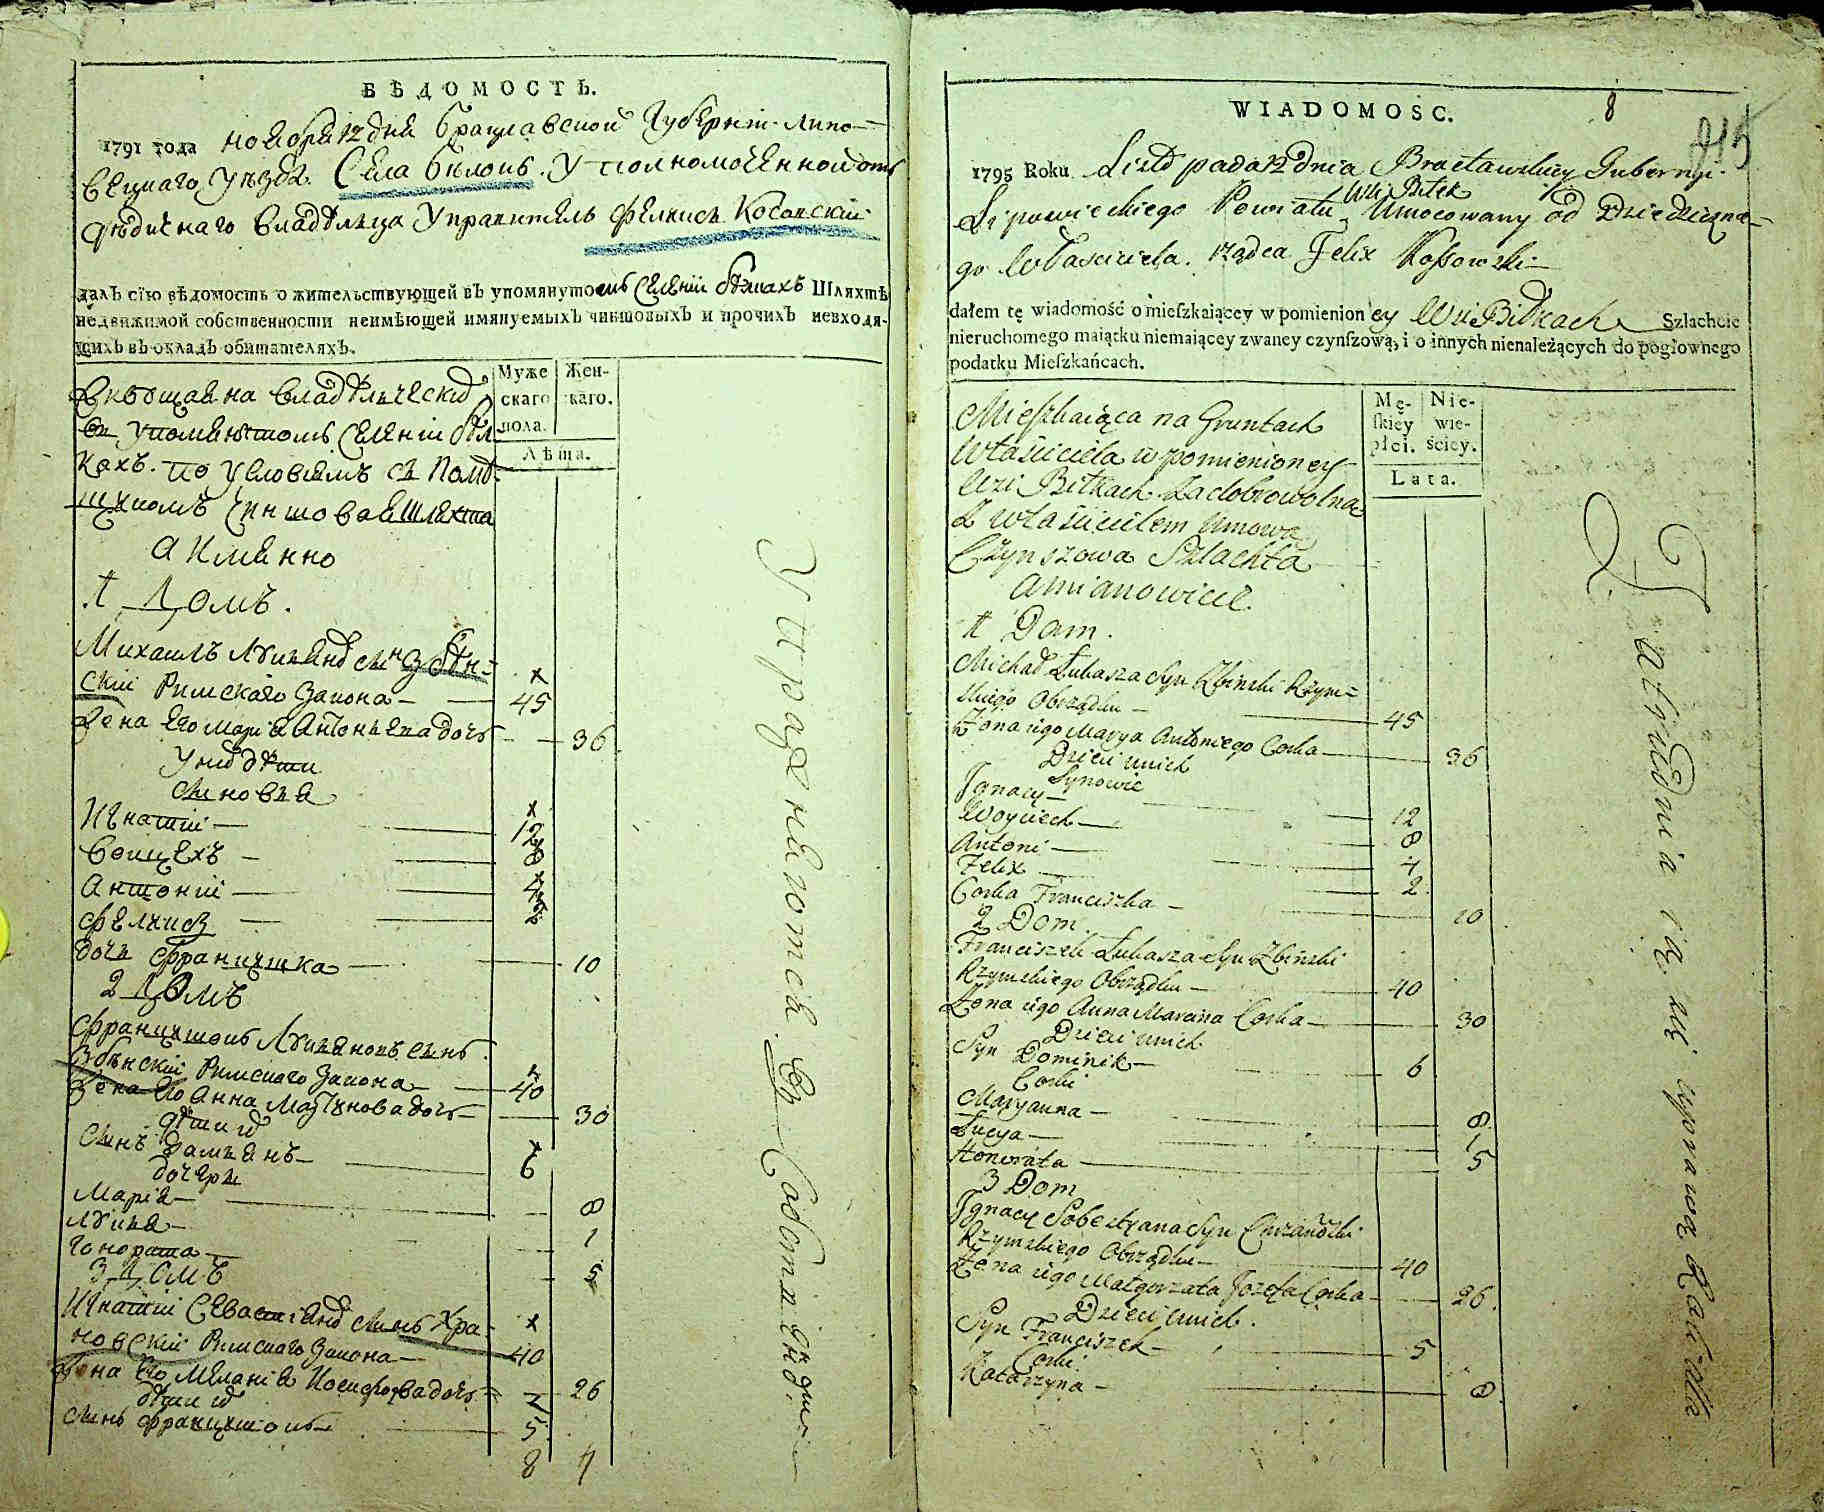 ВѢДОМОСТЬ.
1791 года ноября 12 дня Брацлавской Губерніи Липо-
вецкаго уѣзда Села Бѣлокъ. Уполномоченной отъ
дѣдичнаго владѣльца Управитель Феликсъ Косовскій
далъ сію вѣдомость о жительствующей въ упомянутомъ селеніи Бѣлкахъ Шляхтѣ
недвижимой собственности неимѣющей имянуемыхъ чиншовыхъ и прочихъ невходя-
щихъ въ окладъ обитателяхъ.
Муже
скаго
пола.
Жен-
скаго.
Лѣта.
на владѣльческой
въ упомянутомъ селеніи Бѣл
кахъ. по условіямъ съ помѣ
щикомъ чиншовая шляхта
а имянно
1 Домъ.
Михайлъ Лукяновъ сынъ Збѣн-
скій Римскаго Закона — 45
Жена его Марія Антоньева дочь — 36
У нихъ дѣти
сыновья
Игнатій — 12
Войцехъ — 8
Антоній — 4
Феликсъ — 2
дочь Францишка — 10
2 Домъ
Францишокъ Лукяновъ сынъ
Збѣнскій Римскаго Закона — 40
Жена его Анна Марцинова дочь — 30
дѣти ихъ
Сынъ Дамьянъ — 6
дочери
Марія — 8
Лукия — 1
Гонората — 5
3 Домъ
Игнатій Севастіяновъ сынъ Хра-
новскій Римскаго Закона — 40
Жена его Меланія Иосифова дочь — 26
дѣти ихъ
сынъ Францишокъ — 5
8 7
Упражняются
WIADOMOSC.
8
915
1795 Roku Listopada 12 dnia Bracławskiey Gubernyi
Lipowieckiego Powiatu Wsi Biłek Umocowany od Dziedziczne-
go Własciciela. rządca Felix Kossowski
dałem tę wiadomość o mieszkaiącey w pomienioney Wsi Biłkach Szlachcie
nieruchomego maiątku niemaiącey zwaney czynszową, i o innych nienależących do pogłownego
podatku Mieszkańcach.
Mę-
skiey
płci.
Nie-
wie-
ściey.
Lata.
Mieszkaiąca na Gruntach
Własciciela w pomienioney
Wsi Biłkach Za dobrowolną
Z własicielem Umową
Czynszowa Szlachta
amianowicie.
1 Dom.
Michał Łukasza Syn Zbinski Rzym-
skiego Obrządku — 45
Żona iego Marya Antoniego Corka — 36
Dzieci unich
Synowie
Ignacy — 12
Woyciech — 8
Antoni — 4
Felix — 2
Corka Franciszka — 10
2 Dom.
Franciszek Łukasza Syn Zbinski
Rzymskiego Obrządku — 40
Żona iego Anna Marcina Corka — 30
Dzieci unich
Syn Dominik — 6
Corki
Maryanna — 8
Łucya — 1
Honorata — 5
3 Dom
Ignacy Sobestyana Syn Chrzanowski
Rzymskiego Obrządku — 40
Żona iego Małgorzata Jozefa Corka — 26
Dzieci unich.
Syn Franciszek — 5
Corki
Katarzyna — 8
Zatrudnia się uprawą